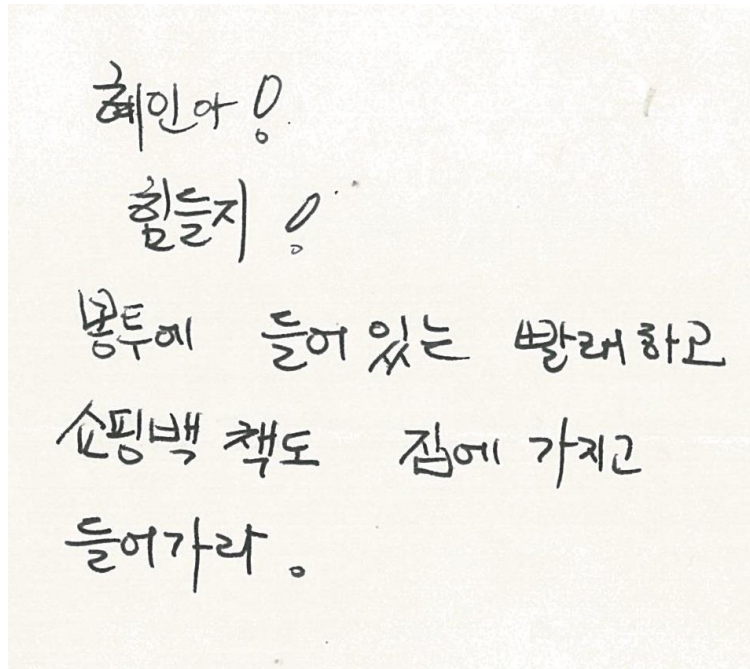 혜인아!
힘들지!
봉투에 들어있는 빨래하고
쇼핑백 책도 집에 가지고
들어가라.